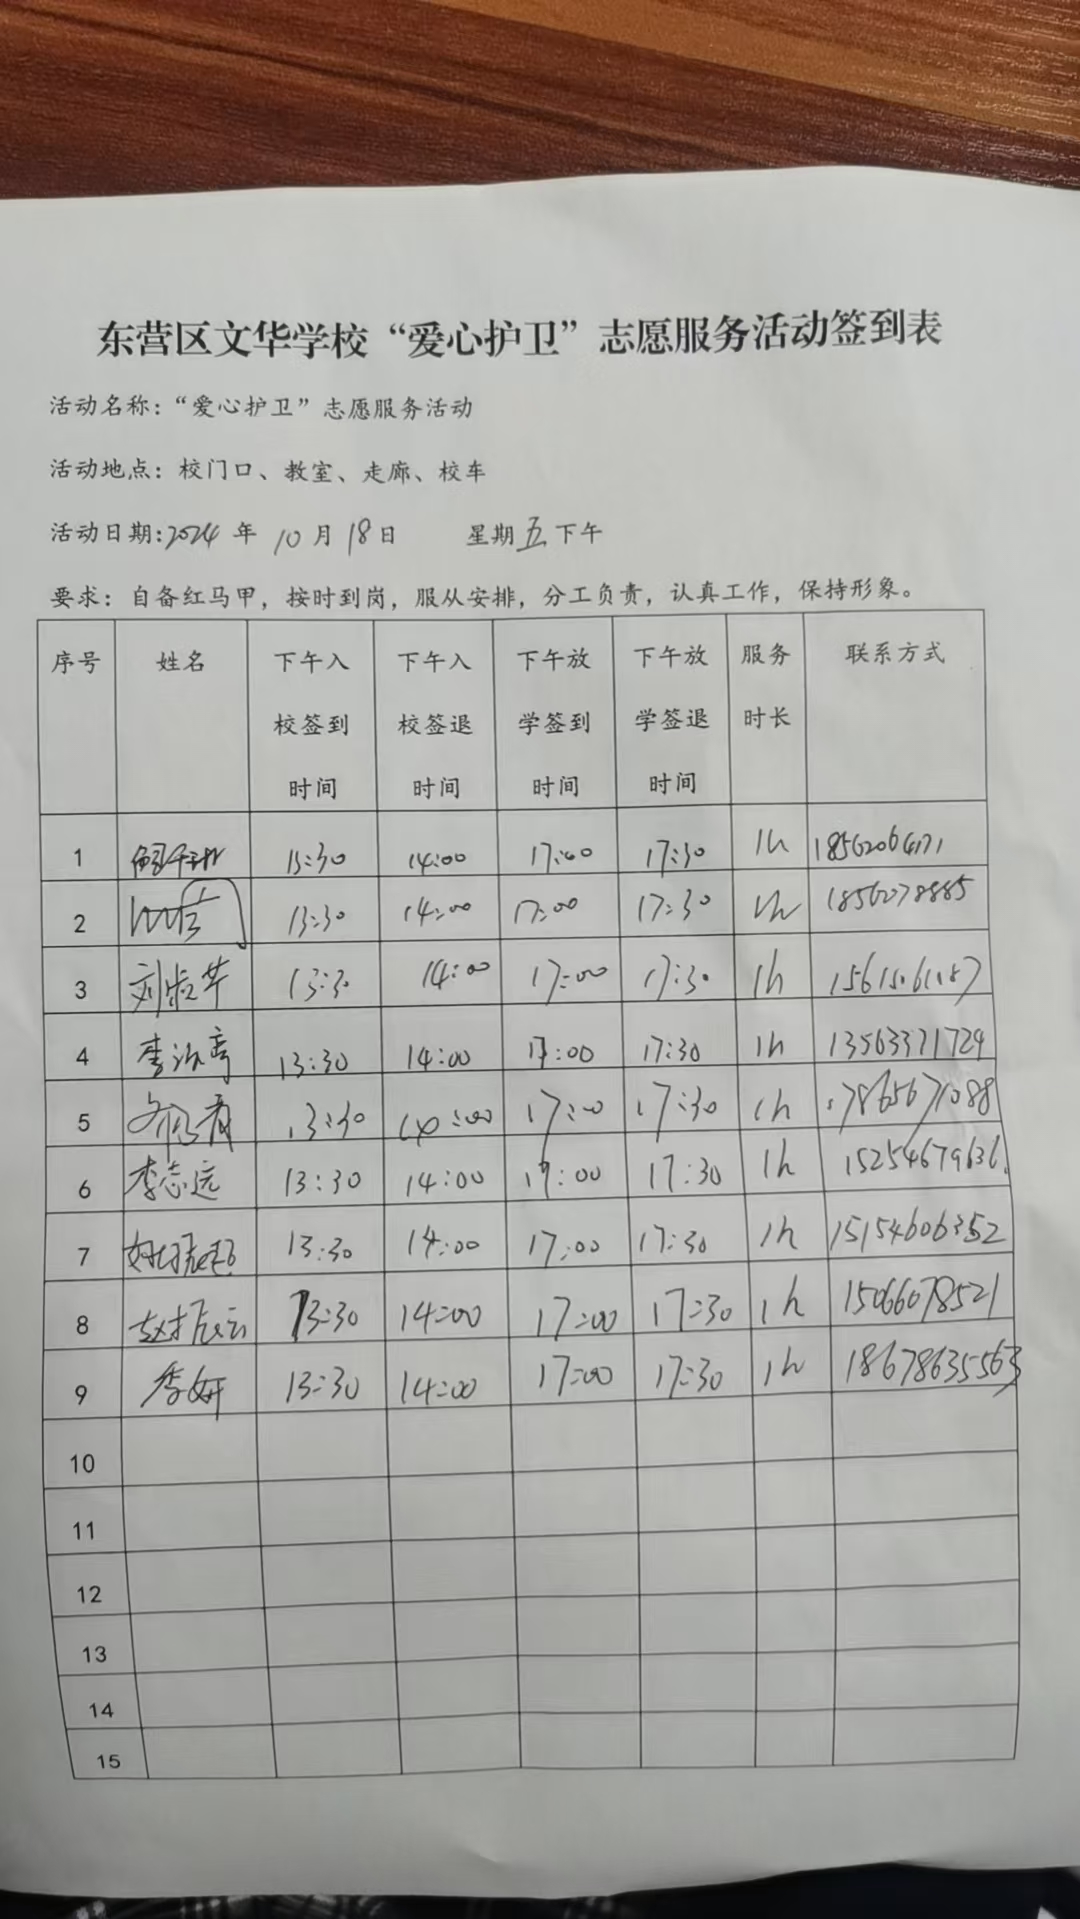 东营区文华学校“爱心护卫”志愿服务活动签到表
活动名称：“爱心护卫”志愿服务活动
活动地点：校门口、教室、走廊、校车
活动日期:2024年 10月18日 星期五下午
要求：自备红马甲，按时到岗，服从安排，分工负责，认真工作，保持形象。
序号 姓名 下午入校签到时间 下午入校签退时间 下午放学签到时间 下午放学签退时间 服务时长 联系方式
1 13:30 14:00 17:00 17:30 1h
2 13:30 14:00 17:00 17:30 1h 18562078885
3 13:30 14:00 17:00 17:30 1h
4 13:30 14:00 17:00 17:30 1h 13563371729
5 13:30 14:00 17:00 17:30 1h 17865671088
6 李志远 13:30 14:00 17:00 17:30 1h 15254679636
7 13:30 14:00 17:00 17:30 1h 15154606352
8 13:30 14:00 17:00 17:30 1h 15066078521
9 李妍 13:30 14:00 17:00 17:30 1h 18678635563
10
11
12
13
14
15